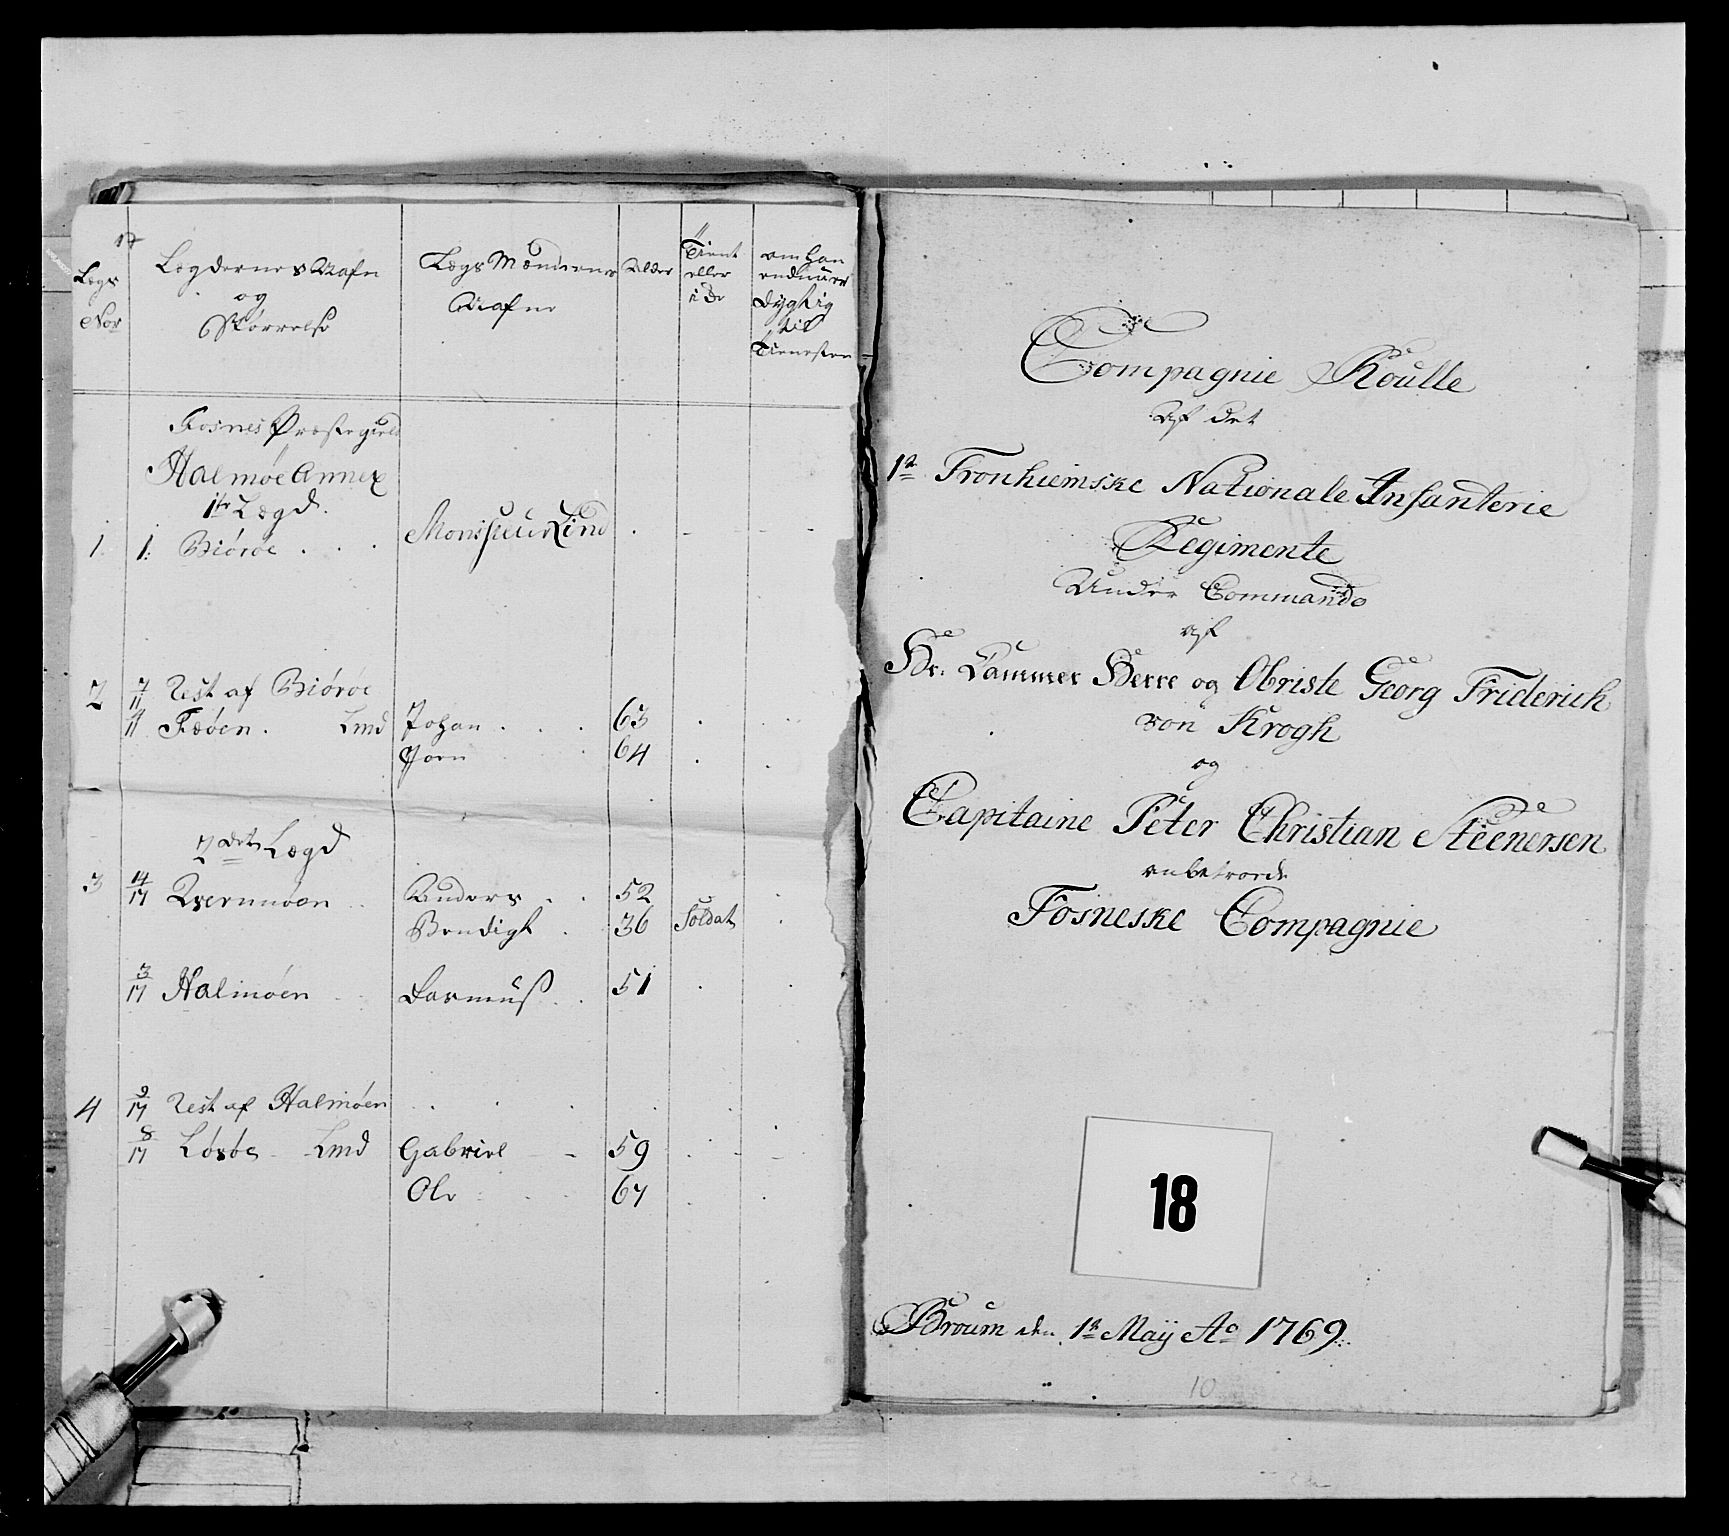 Lægs
No
Lægdernes Nafn
og
Størrelse
Lægs Mændernes
Nafne
Alder
Tient
eller
i De
om han
endnu er
dygtig
til
Tienesten
Fosnes Præstegield
Halmøe Annex
1te Lægd.
1. 1. Biøröe . . . Monsieur Lind . - - -
2 7/11 Rest af Biøröe
4/11 Fæøen . Lmd Johan . . . 63 . .
Jørn 64 . .
2det Lægd
3 14/17 Qvernøen . . Anders . . 52 .
Bendigt . 36 Soldat .
3/17 Halmøen . . Rasmuß . . 51 . .
4 9/17 Rest af Halmøen . . . . .
8/17 Løvøe - Lmd Gabriel - - 59 . - -
Ole . . . 67 . .
Compagnie Roulle
Af det
1te Tronhiemske Nationale Infanterie
Regimente
Under Commando
af
Hr: Cammer Herre og Obriste Georg Friderich
von Krogh
og
Capitaine Peter Christian Steenersen
anbetroede
Fosneske Compagnie
18
Broum den 1te Maÿ Ao 1769.
10